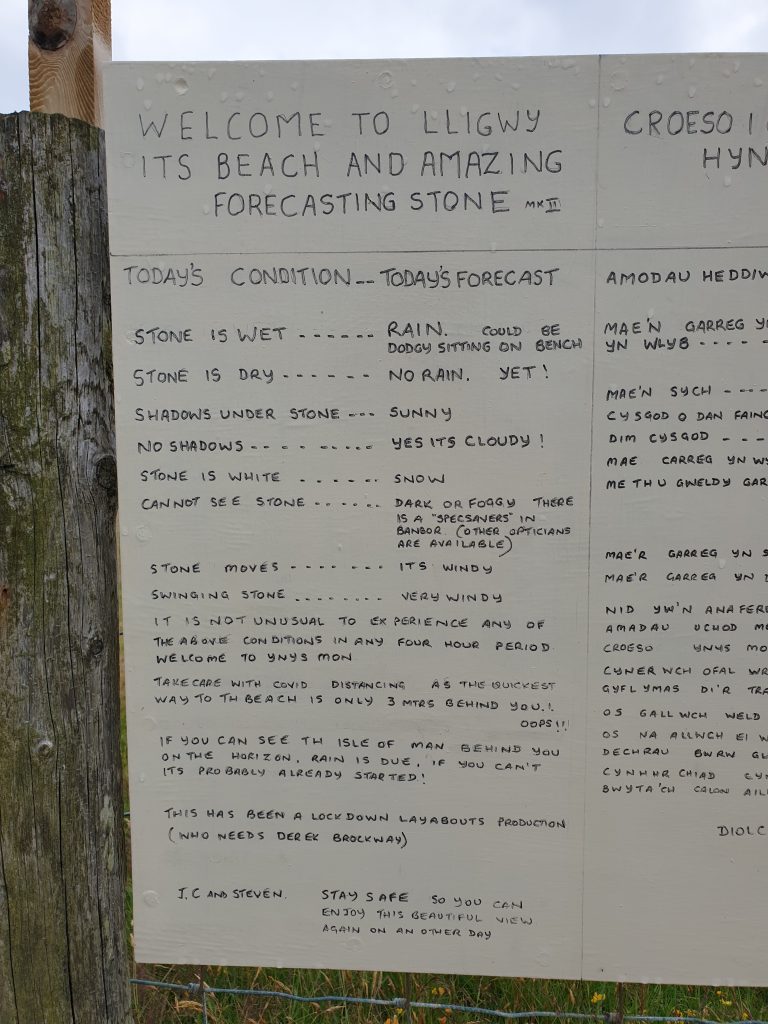 WELCOME TO LLIGWY
ITS BEACH AND AMAZING
FORECASTING STONE MK II
TODAY'S CONDITION -- TODAY'S FORECAST
STONE IS WET ------ RAIN. COULD BE
DODGY SITTING ON BENCH
STONE IS DRY ------ NO RAIN. YET!
SHADOWS UNDER STONE --- SUNNY
NO SHADOWS --------- YES ITS CLOUDY!
STONE IS WHITE ------ SNOW
CANNOT SEE STONE ------ DARK OR FOGGY THERE
IS A "SPECSAVERS" IN
BANGOR (OTHER OPTICIANS
ARE AVAILABLE)
STONE MOVES -------- ITS WINDY
SWINGING STONE -------- VERY WINDY
IT IS NOT UNUSUAL TO EXPERIENCE ANY OF
THE ABOVE CONDITIONS IN ANY FOUR HOUR PERIOD.
WELCOME TO YNYS MON
TAKE CARE WITH COVID DISTANCING AS THE QUICKEST
WAY TO TH BEACH IS ONLY 3 MTRS BEHIND YOU.!
OOPS!!
IF YOU CAN SEE TH ISLE OF MAN BEHIND YOU
ON THE HORIZON. RAIN IS DUE, IF YOU CAN'T
ITS PROBABLY ALREADY STARTED!
THIS HAS BEEN A LOCKDOWN LAYABOUTS PRODUCTION
(WHO NEEDS DEREK BROCKWAY)
J.C AND STEVEN. STAY SAFE SO YOU CAN
ENJOY THIS BEAUTIFUL VIEW
AGAIN ON AN OTHER DAY
CROESO I
HYN
AMODAU HEDDIW
MAE'N GARREG
YN WLYB -----
MAE'N SYCH ----
CYSGOD O DAN
DIM CYSGOD ---
MAE CARREG YN
METHU GWELDY
MAE'R GARREG YN
MAE'R GARREG YN
NID YW'N
AMADAU UCHOD
CROESO YNYS
CYNERWCH OFAL
GYFLYMAS DI'R
OS GALLWCH WELD
OS NA ALLWCH EI
DECHRAU BWRW
CYNHHRCHIAD
BWYTA'CH CALON
DIOLC